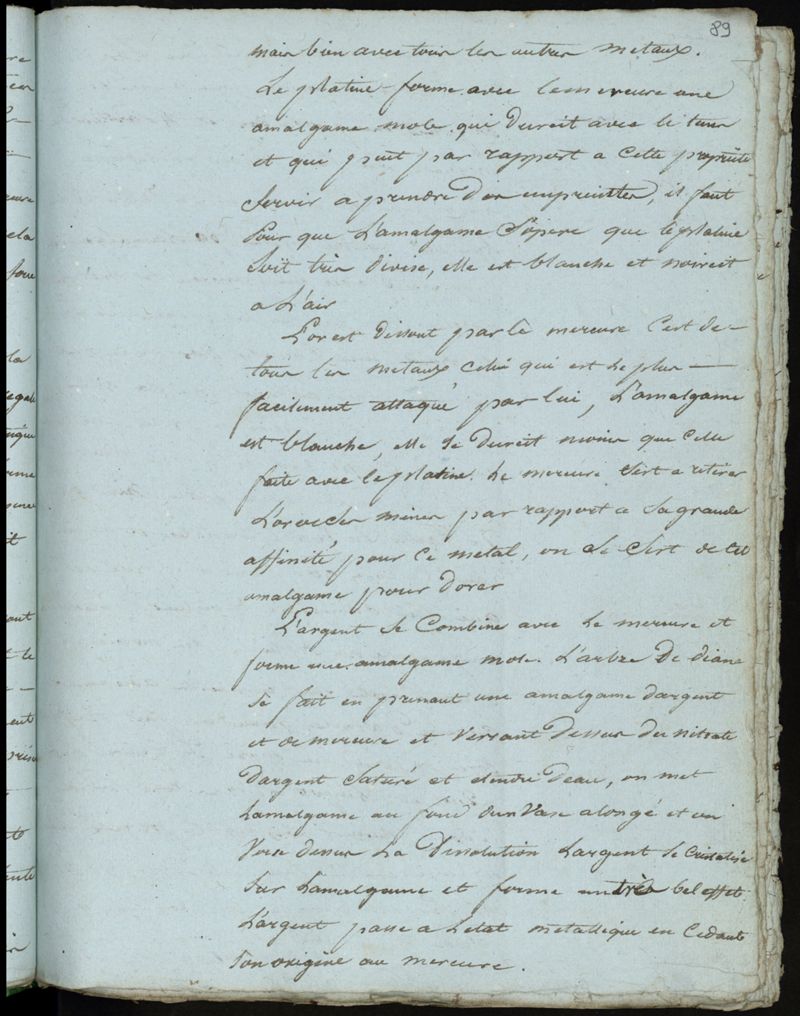 89
mais bien avec tous les autres metaux.
Le platine forme avec le mercure une
amalgame mole qui durcit avec le tems
et qui peut par rapport a cette propriété
Servir a prendre des empreintes, il faut
pour que L'amalgame S'opere que le platine
Soit très divisé, elle est blanche et noircit
a L'air
L'or est dissout par le mercure C'est de
tous les metaux celui qui est le plus
facilement attaqué par lui, L'amalgame
est blanche, elle se durcit moins que celle
faite avec le platine. Le mercure sert a retirer
L'or de ses mines par rapport a Sa grande
affinité pour ce metal, on se Sert de cet
amalgame pour dorer
L'argent se Combine avec Le mercure et
forme une amalgame mole. L'arbre De diane
se fait en prenant une amalgame d'argent
et de mercure et versant dessus du nitrate
D'argent Saturé et etendu D'eau, on met
L'amalgame au fond d'un Vase alongé et on
Verse dessus La Dissolution L'argent se Cristalise
Sur L'amalgame et forme un très bel effet
L'argent passe a L'etat metallique en Cedant
Son origine au mercure.